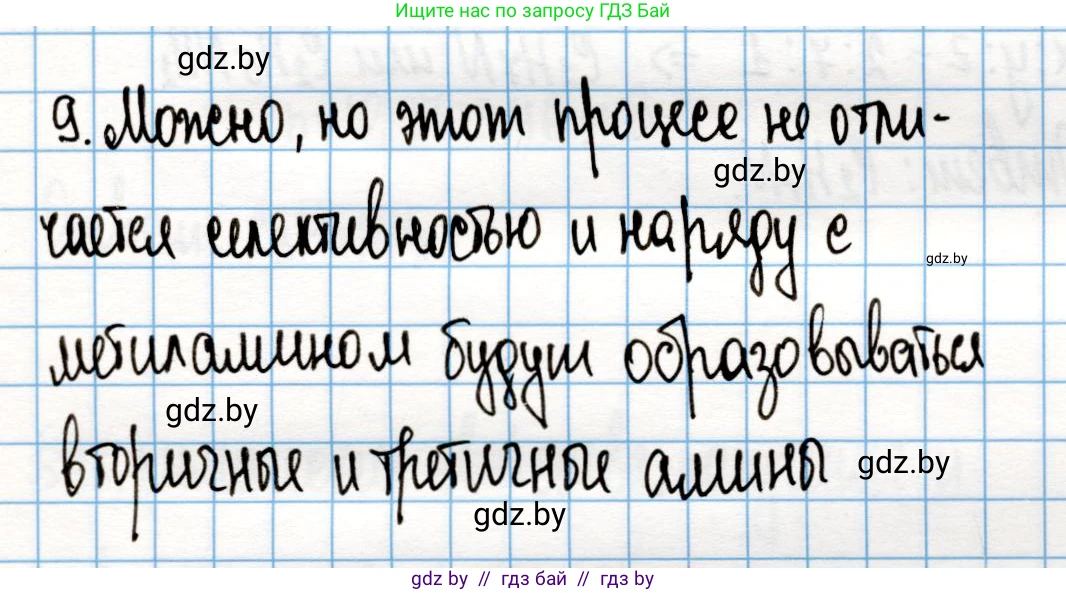 Ищите нас по запросу ГДЗ Бай
gdz.by
9. Можно, но этот процесс не отли-
gdz.by
чается селективностью и наряду с
gdz.by
метиламином будут образовываться
gdz.by
вторичные и третичные амины
gdz.by
gdz.by
gdz by // гдз бай // гдз by